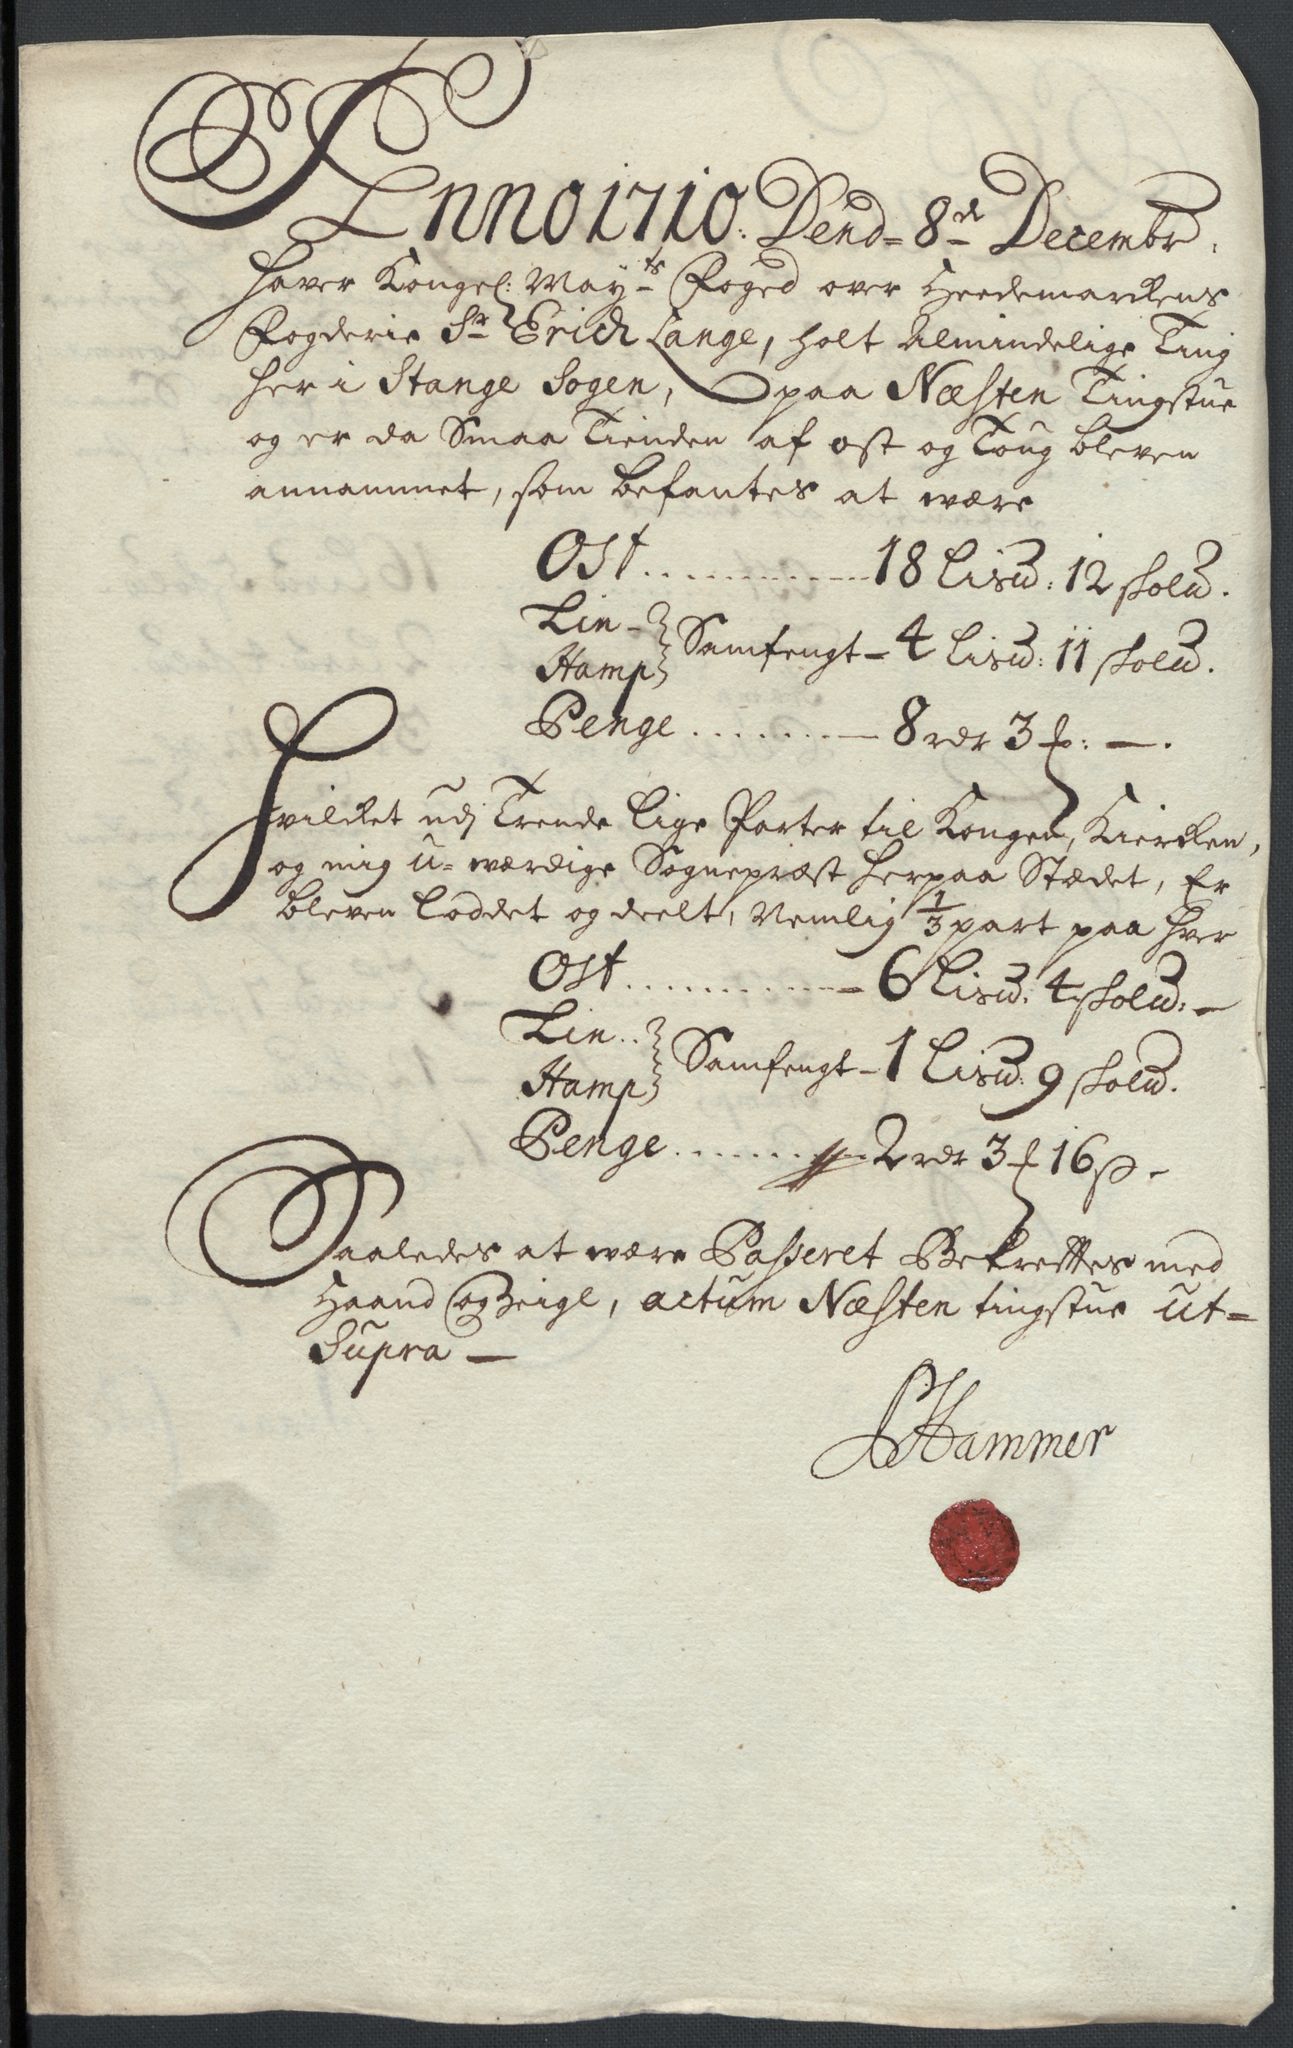 Anno 1710. Dend= 8de Decembr.
Haver Kongel: Mayts Foged over Heedemarckens
Fogderie Sr Erich Lange, holt Almindelige Ting
her i Stange Sogen, paa Næsten Tingstue
og er da Smaa Tienden af ost og Toug bleven
annammet, som befantes at være
Ost ............ 18 Lis℔: 12 skol℔.
Lin - } Samfengt - 4 Lis℔: 11 skol℔.
Hamp }
Penge ........ 8 rdr 3 ƒ: —.
Hvilcket udj Trende lige Parter til Kongen, Kiercken,
og mig u=værdige Sognepræst herpaa Stædet, Er
bleven loddet og deelt, Nemlig 1/3 part paa hver
Ost ............ 6 Lis℔: 4 skol℔: -
Lin .. } Samfengt - 1 Lis℔: 9 skol℔.
Hamp }
Penge ........ 2 rdr 3 ƒ 16 ß -
Saaledes at være Passeret Bekreftes med
Haand og Zeigl, actum Næsten tingstue ut=
Supra —
Hammer